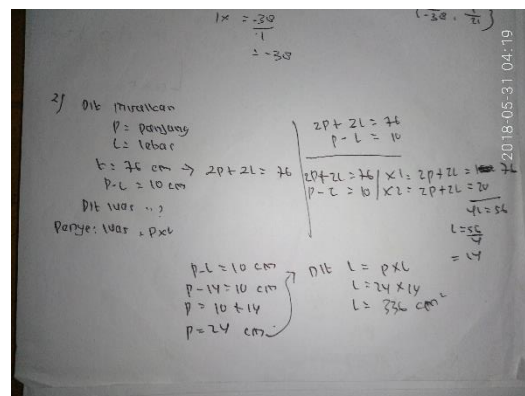 1x = -38
1
= -38
2) Dik misalkan
P = panjang
L = lebar
k = 76 cm → 2P + 2L = 76
P - L = 10 cm
Dit luas ..?
Penye: luas = P x L
2P + 2L = 76
P - L = 10
2P + 2L = 76 / x1 = 2P + 2L = 76
P - L = 10 / x2 = 2P + 2L = 20
4L = 56
L = 56
4
= 14
P - L = 10 cm
P - 14 = 10 cm
P = 10 + 14
P = 24 cm
Dit L = P x L
L = 24 x 14
L = 336 cm²
2018-05-31 04:19